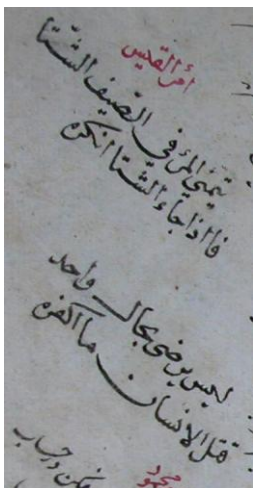 امرؤ القيس
يتمنى المرء في الصيف الشتا
فاذا جاء الشتا انكره
ليس يرضى بحال واحد
قتل الانسان ما اكفره
محمود